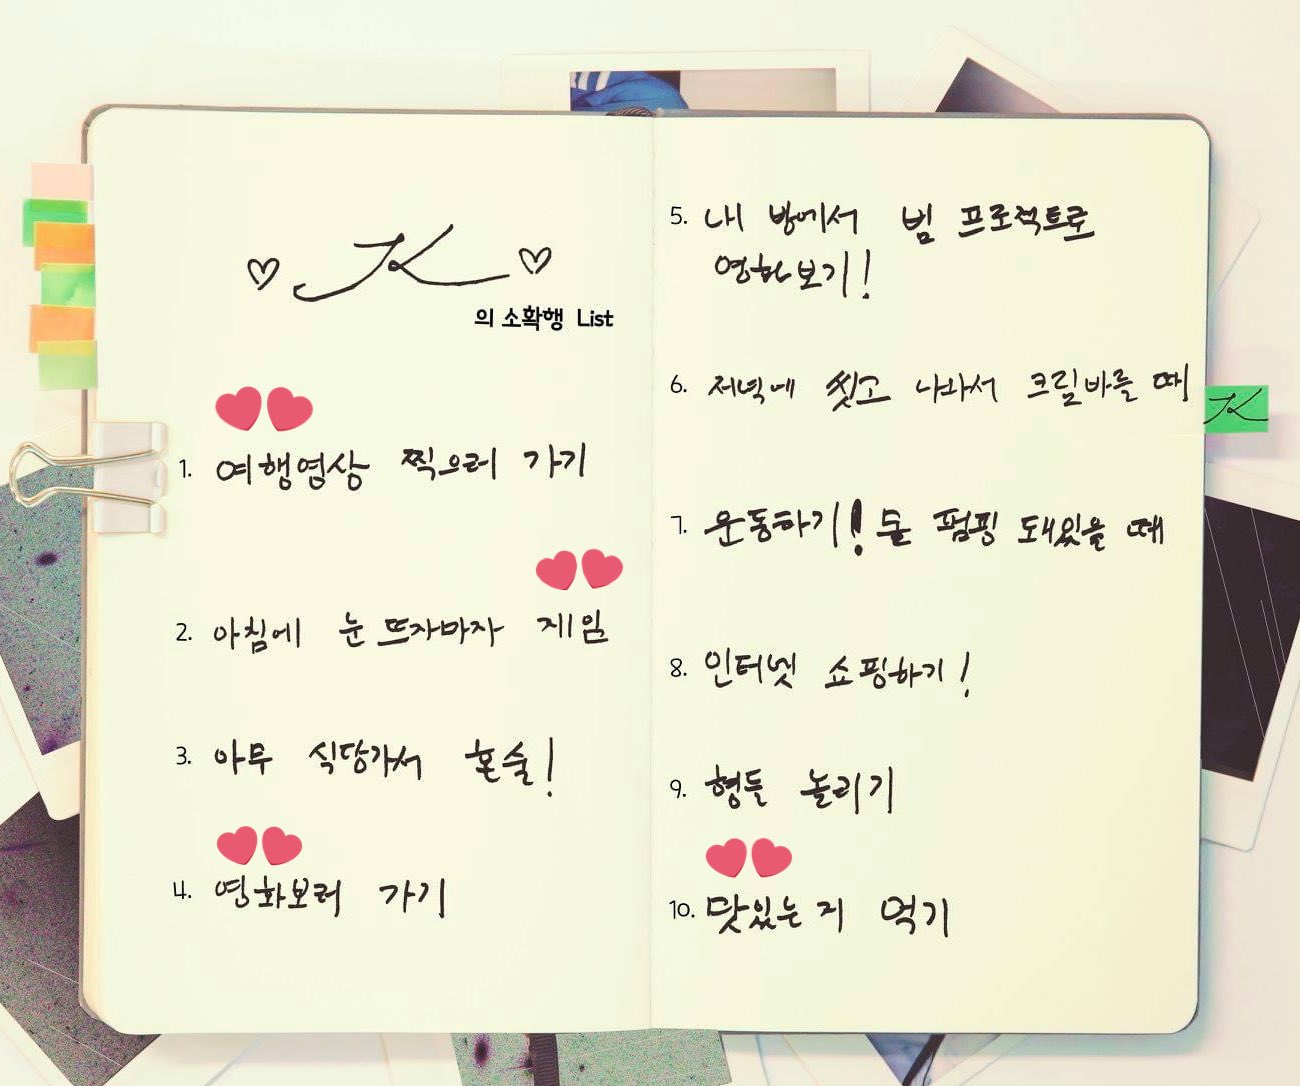 JK
의 소확행 List
1. 여행영상 찍으러 가기
2. 아침에 눈 뜨자마자 게임
3. 아무 식당가서 혼술!
4. 영화보러 가기
5. 내 방에서 빔 프로젝트로
영화보기!
6. 저녁에 씻고 나와서 크림바를 때
JK
7. 운동하기! 몸 펌핑 돼있을 때
8. 인터넷 쇼핑하기!
9. 형들 놀리기
10. 맛있는거 먹기